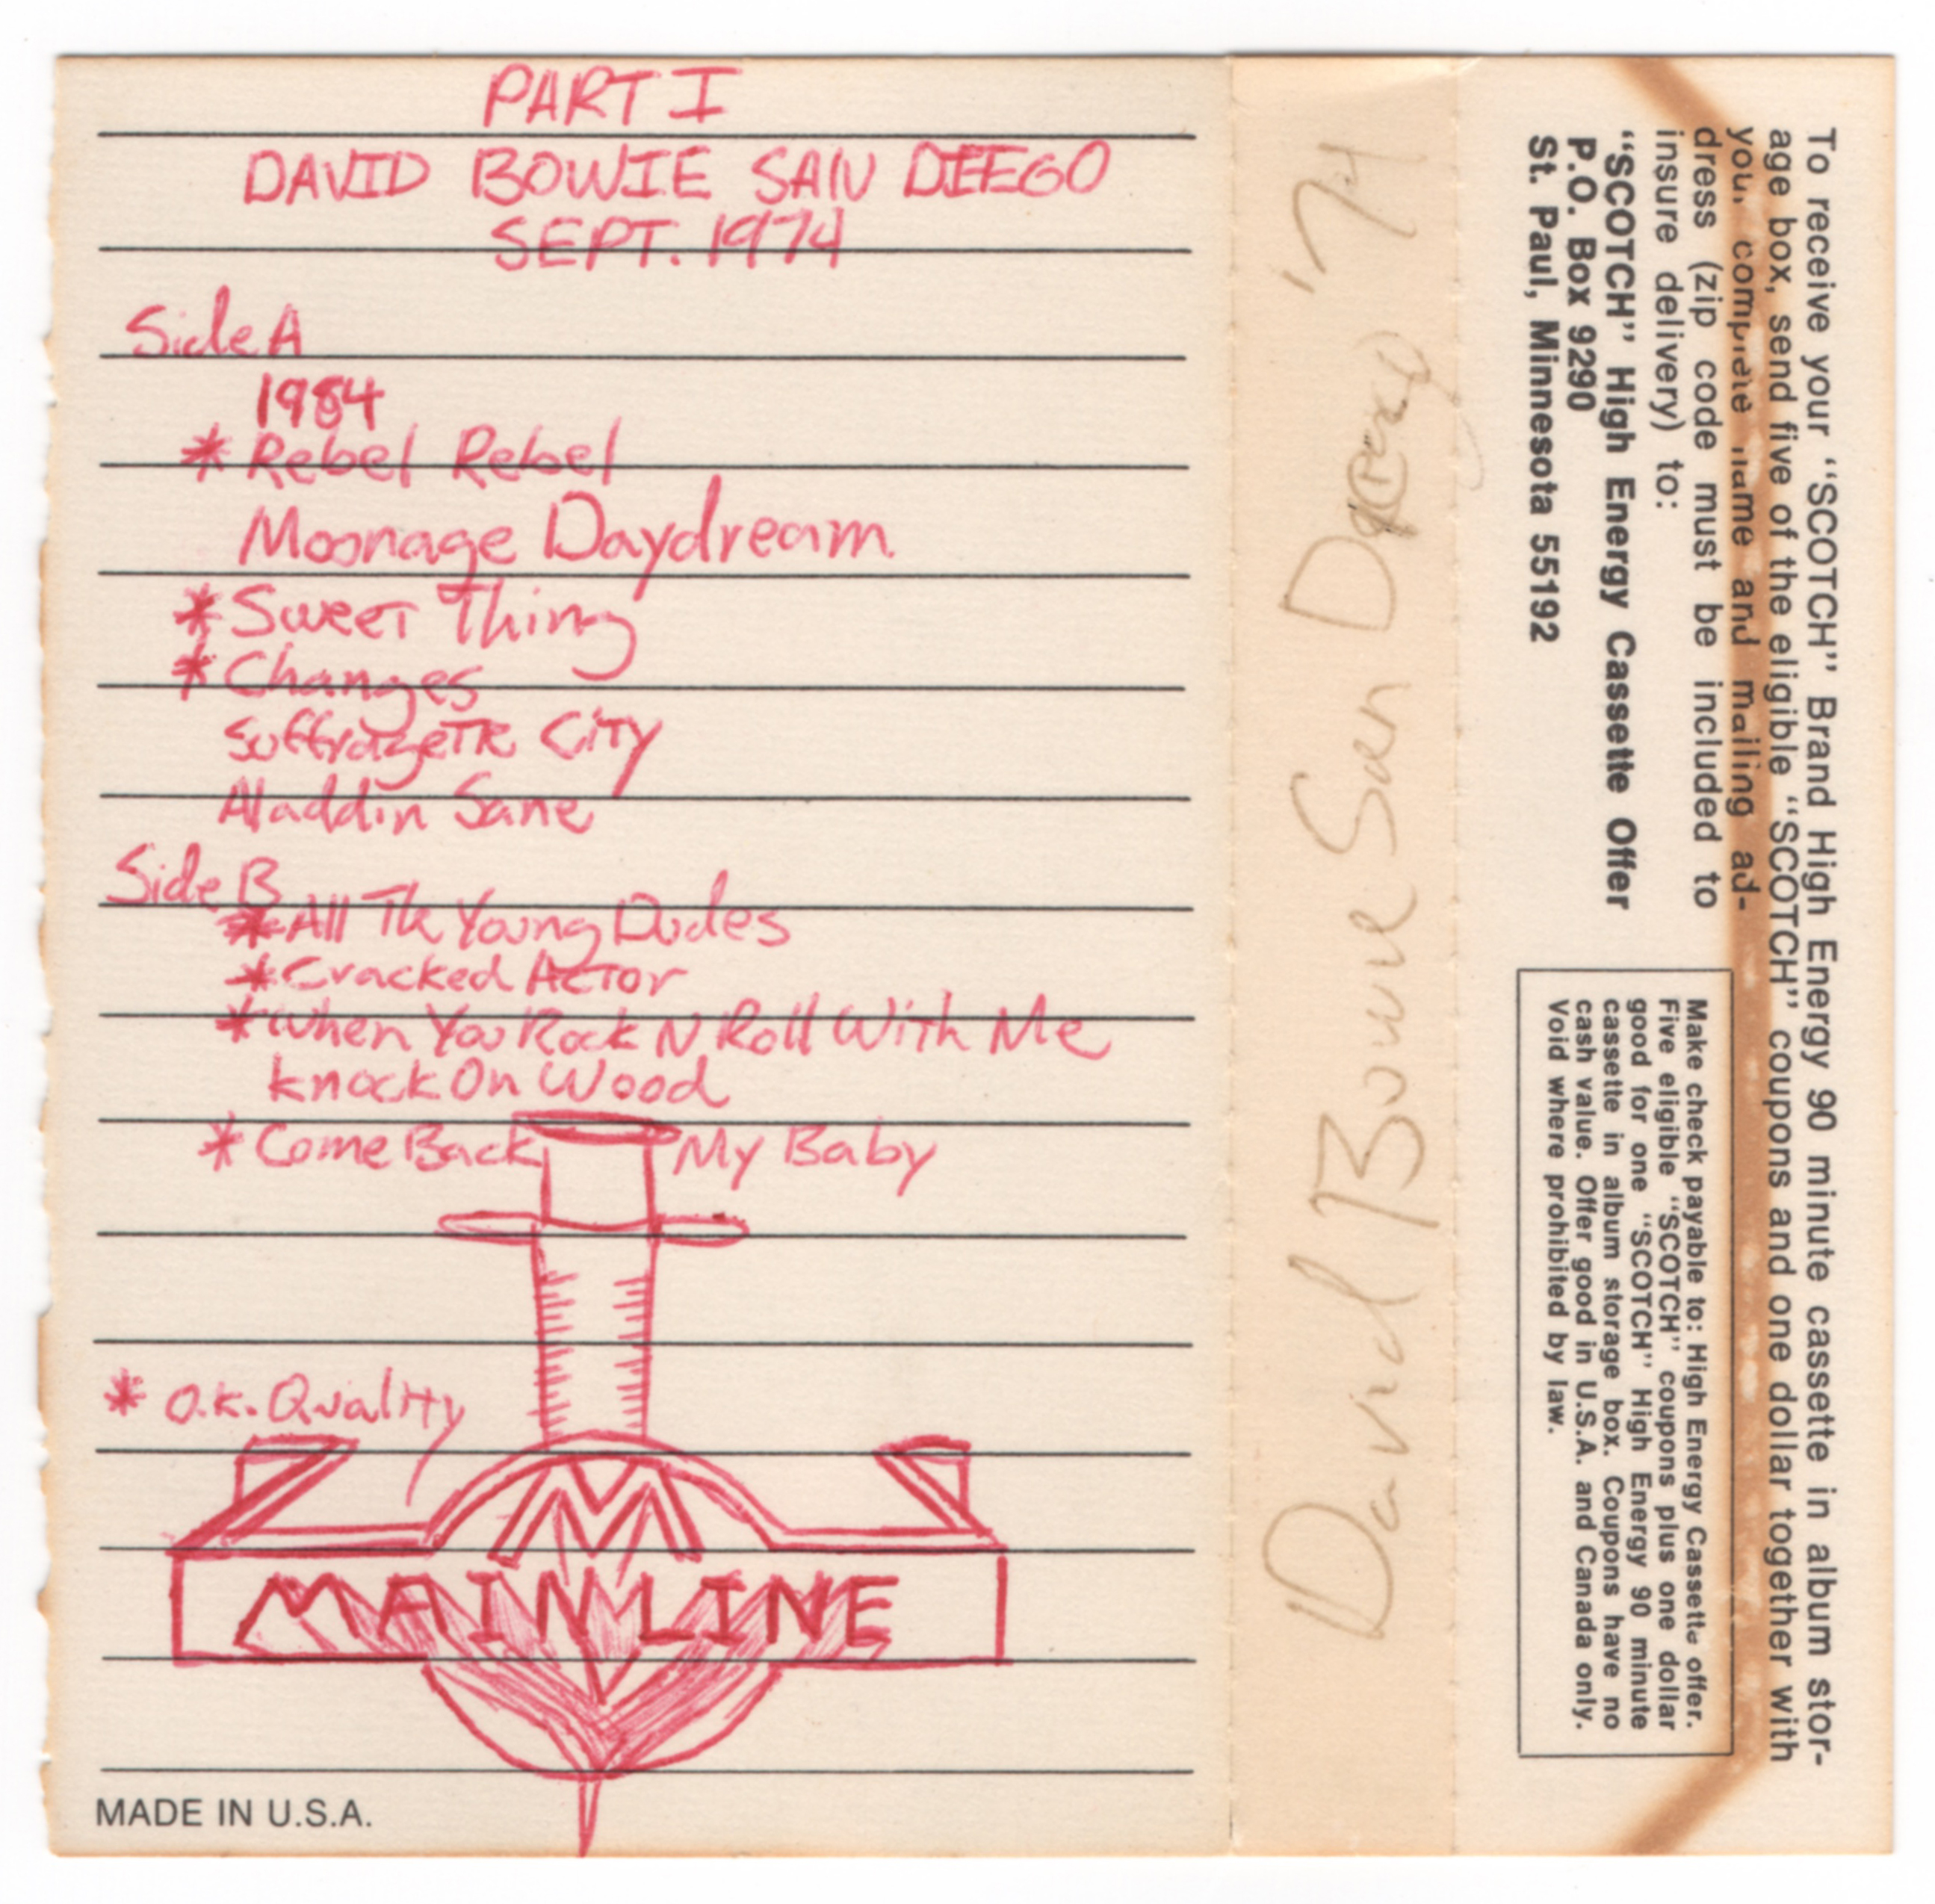 PART I
DAVID BOWIE SAN DIEEGO
SEPT. 1974
Side A
1984
* Rebel Rebel
Moonage Daydream
* Sweet Thing
* Changes
Suffragette City
Aladdin Sane
Side B
* All The Young Dudes
* Cracked Actor
* When You Rock N Roll With Me
Knock On Wood
* Come Back My Baby
* O.K. Quality
M
MAINLINE
MADE IN U.S.A.
David Bowie San Diego '74
To receive your "SCOTCH" Brand High Energy 90 minute cassette in album stor-
age box, send five of the eligible "SCOTCH" coupons and one dollar together with
your complete name and mailing ad-
dress (zip code must be included to
insure delivery) to:
"SCOTCH" High Energy Cassette Offer
P.O. Box 9290
St. Paul, Minnesota 55192
Make check payable to: High Energy Cassette offer.
Five eligible "SCOTCH" coupons plus one dollar
good for one "SCOTCH" High Energy 90 minute
cassette in album storage box. Coupons have no
cash value. Offer good in U.S.A. and Canada only.
Void where prohibited by law.